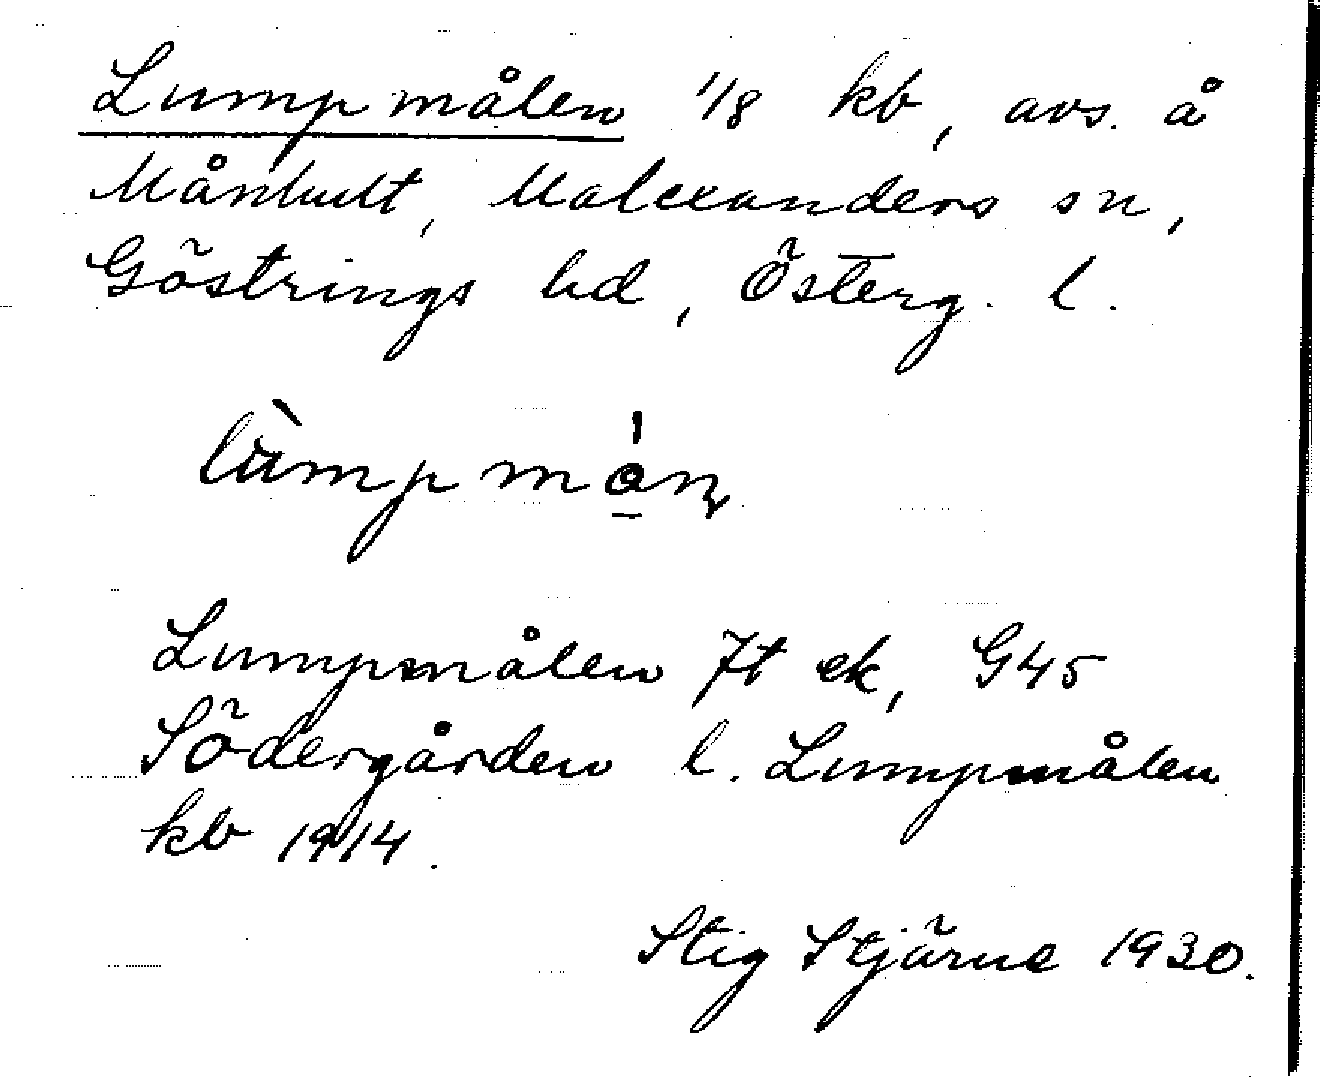 Lumpmålen 1/8 kb, avs. å
Månhult, Malexanders sn,
Göstrings hd, Österg. l.
Lumpmålen Jt ek, G45
Södergården l. Lumpmålen
kb 1914.
Stig Stjärne 1930.